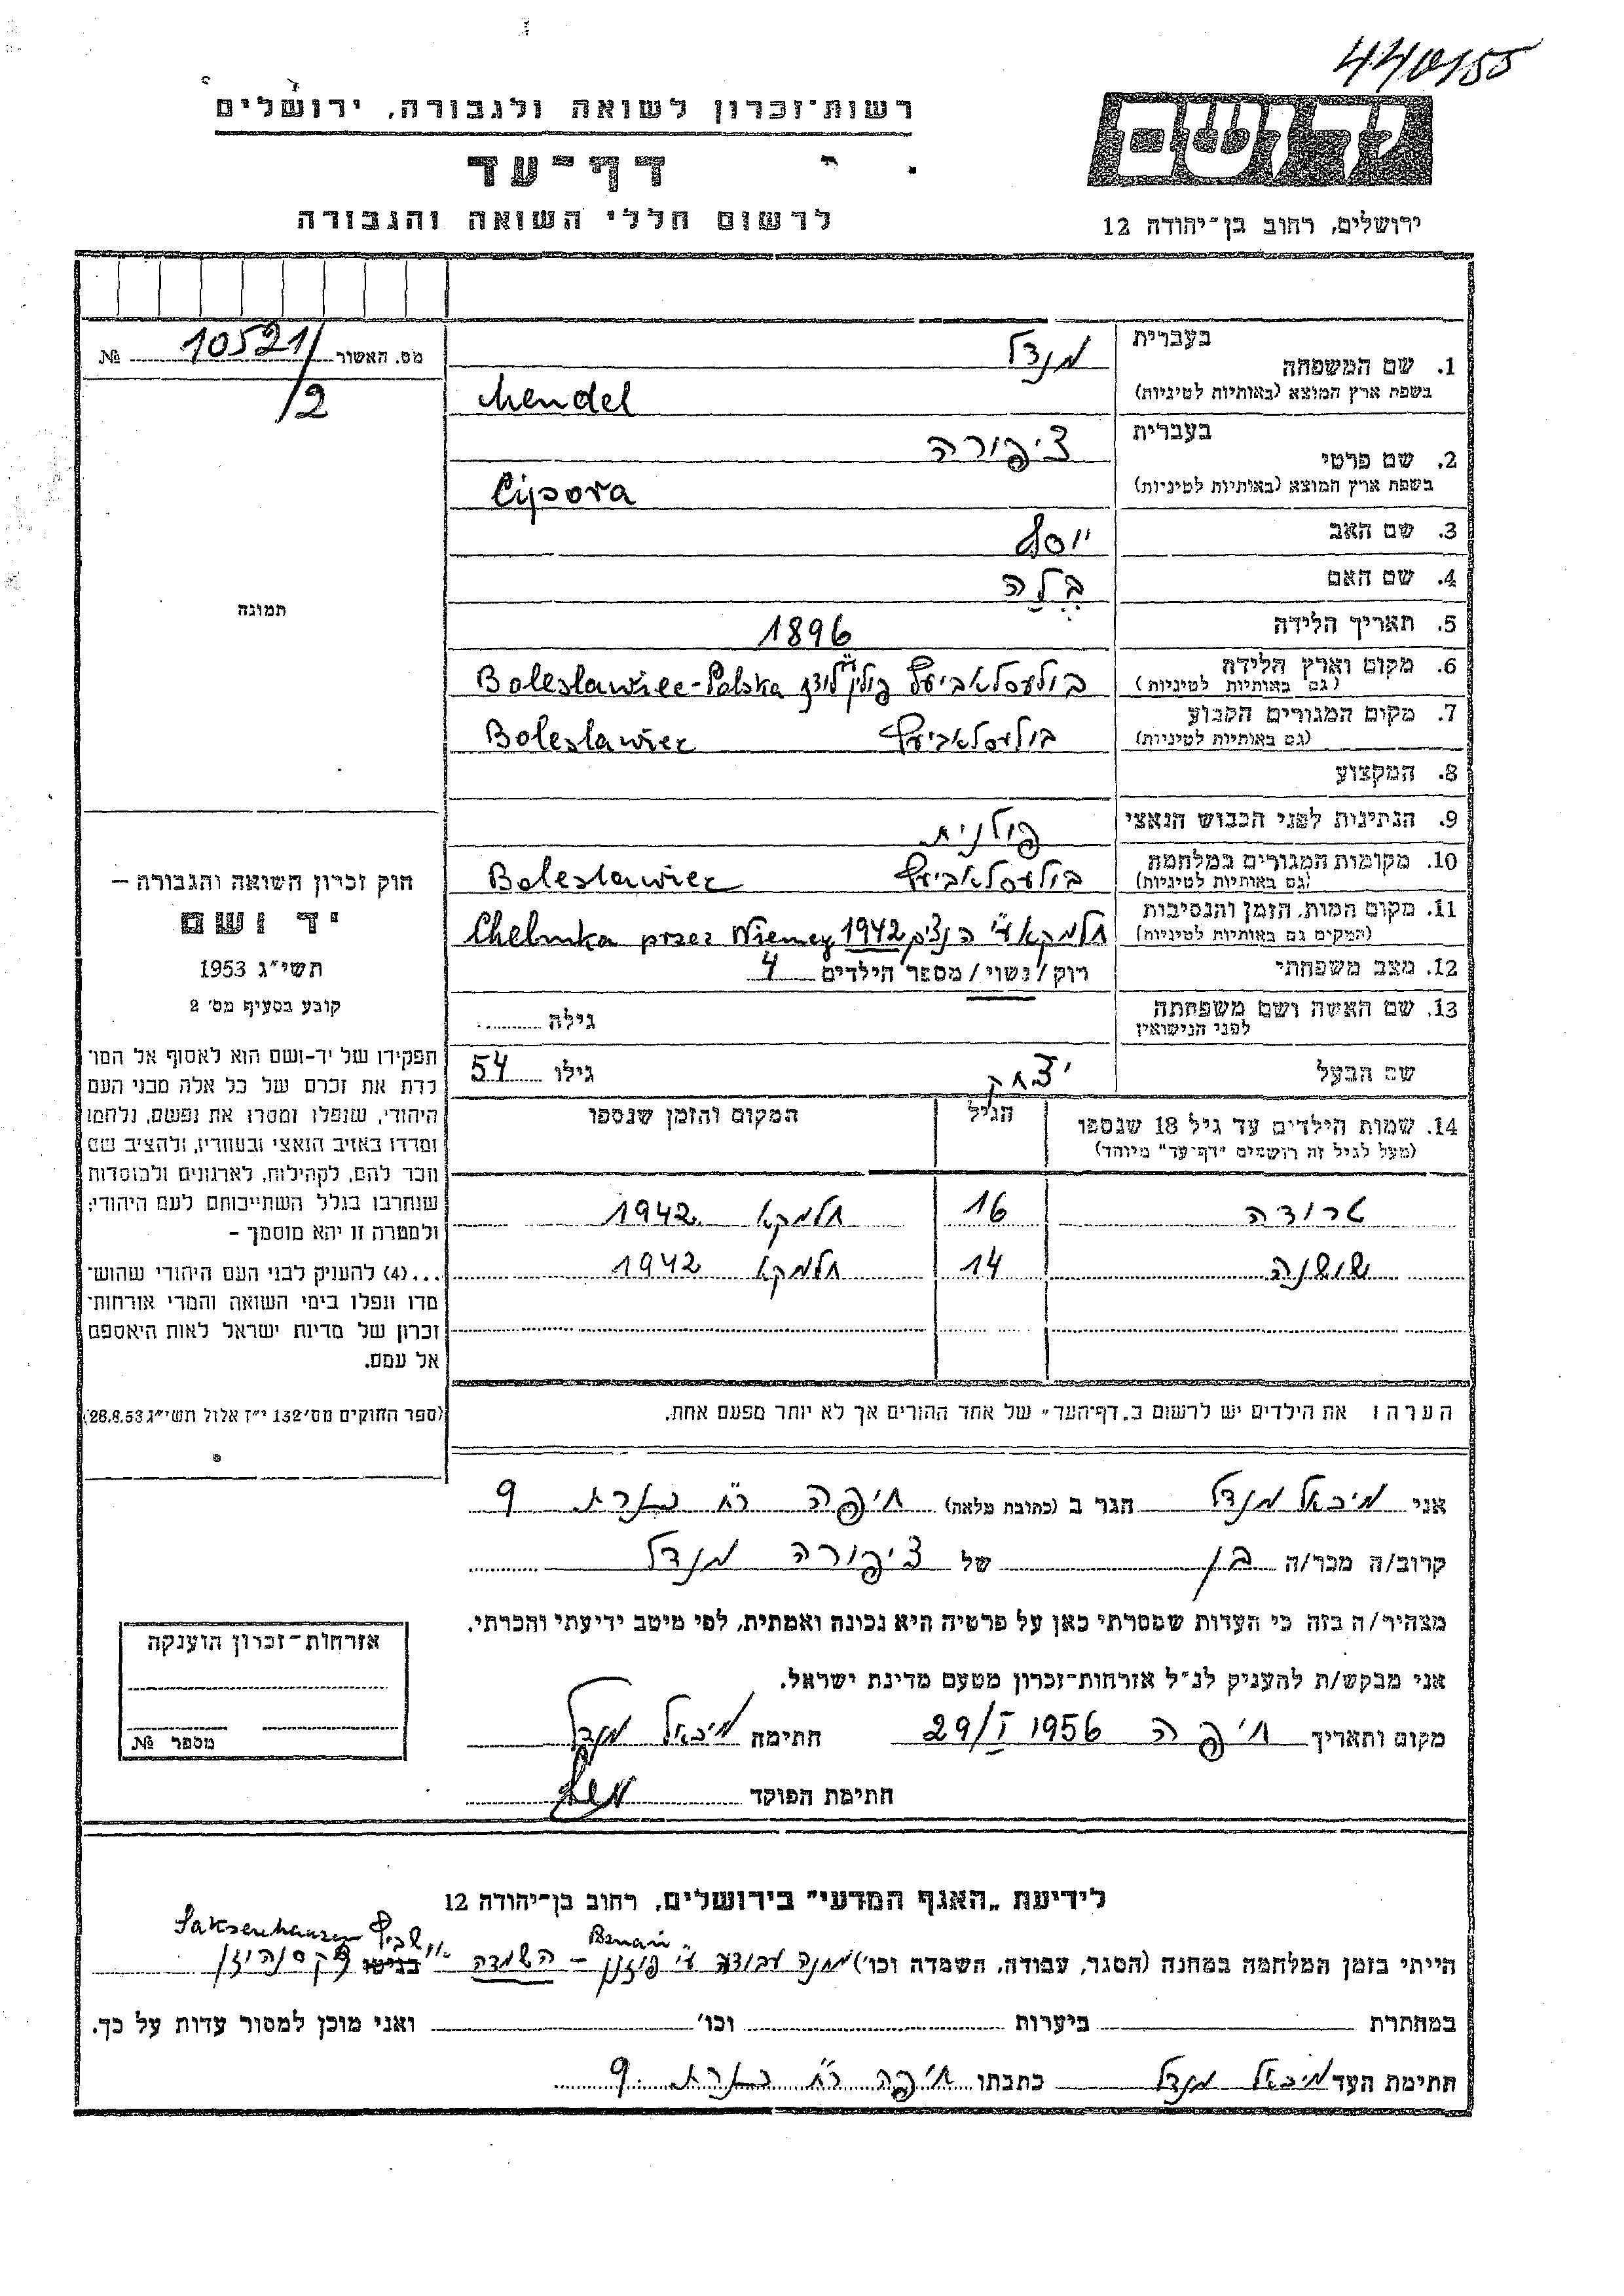 440/55
רשות־זכרון לשואה ולגבורה, ירושלים
יד ושם
דף־עד
לרשום חללי השואה והגבורה
ירושלים, רחוב בן־יהודה 12
מס. האשור 10521/ №
/2
בעברית
1. שם המשפחה
בשפת ארץ המוצא (באותיות לטיניות)
מנדל
Mendel
בעברית
2. שם פרטי
בשפת ארץ המוצא (באותיות לטיניות)
ציפורה
Cipora
3. שם האב יוסף
4. שם האם בלה
5. תאריך הלידה 1896
6. מקום וארץ הלידה
(גם באותיות לטיניות)
בולעסלאביעץ פולין Boleslawiec-Polska
7. מקום המגורים הקבוע
(גם באותיות לטיניות)
בולעסלאביעץ Boleslawiec
8. המקצוע
9. הנתינות לפני הכבוש הנאצי פולנית
10. מקומות המגורים במלחמה
(גם באותיות לטיניות)
בולעסלאביעץ Boleslawiec
11. מקום המות, הזמן והנסיבות
(המקום גם באותיות לטיניות)
חלמקא ע״י הנצים 1942 Chelmka przez Niemcy
12. מצב משפחתי רוק/נשוי/מספר הילדים 4
13. שם האשה ושם משפחתה
לפני הנישואין
גילה
שם הבעל יצחק גילו 54
14. שמות הילדים עד גיל 18 שנספו
(מעל לגיל זה רושמים "דף־עד" מיוחד)
הגיל
המקום והזמן שנספו
טרודה 16 חלמקא 1942
שושנה 14 חלמקא 1942
הערה: את הילדים יש לרשום ב„דף־העד" של אחד ההורים אך לא יותר מפעם אחת.
תמונה
חוק זכרון השואה והגבורה –
יד ושם
תשי"ג 1953
קובע בסעיף מס' 2
תפקידו של יד־ושם הוא לאסוף אל המו־
לדת את זכרם של כל אלה מבני העם
היהודי, שנפלו ומסרו את נפשם, נלחמו
ומרדו באויב הנאצי ובעוזריו, ולהציב שם
וזכר להם, לקהילות, לארגונים ולמוסדות
שנחרבו בגלל השתייכותם לעם היהודי;
ולמטרה זו יהא מוסמך –
...(4) להעניק לבני העם היהודי שהוש־
מדו ונפלו בימי השואה והמרי אזרחות־
זכרון של מדינת ישראל לאות היאספם
אל עמם.
(ספר החוקים מס' 132 י"ז אלול תשי"ג 28.8.53)
אני מיכאל מנדל הגר ב (כתובת מלאה) חיפה רח׳ נצרת 9
קרוב/ה מכר/ה בן של ציפורה מנדל
מצהיר/ה בזה כי העדות שמסרתי כאן על פרטיה היא נכונה ואמתית, לפי מיטב ידיעתי והכרתי.
אני מבקש/ת להעניק לנ"ל אזרחות־זכרון מטעם מדינת ישראל.
מקום ותאריך חיפה 29/I 1956 חתימה מיכאל מנדל
חתימת הפוקד
אזרחות־זכרון הוענקה
מספר №
לידיעת „האגף המדעי" בירושלים, רחוב בן־יהודה 12
Saksenhausen
הייתי בזמן המלחמה במחנה (הסגר, עבודה, השמדה וכו') מחנה עבודה ע״י פוזנן – השמדה בגיטו
במחתרת ביערות וכו' ואני מוכן למסור עדות על כך.
חתימת העד מיכאל מנדל כתבתו חיפה רח׳ נצרת 9